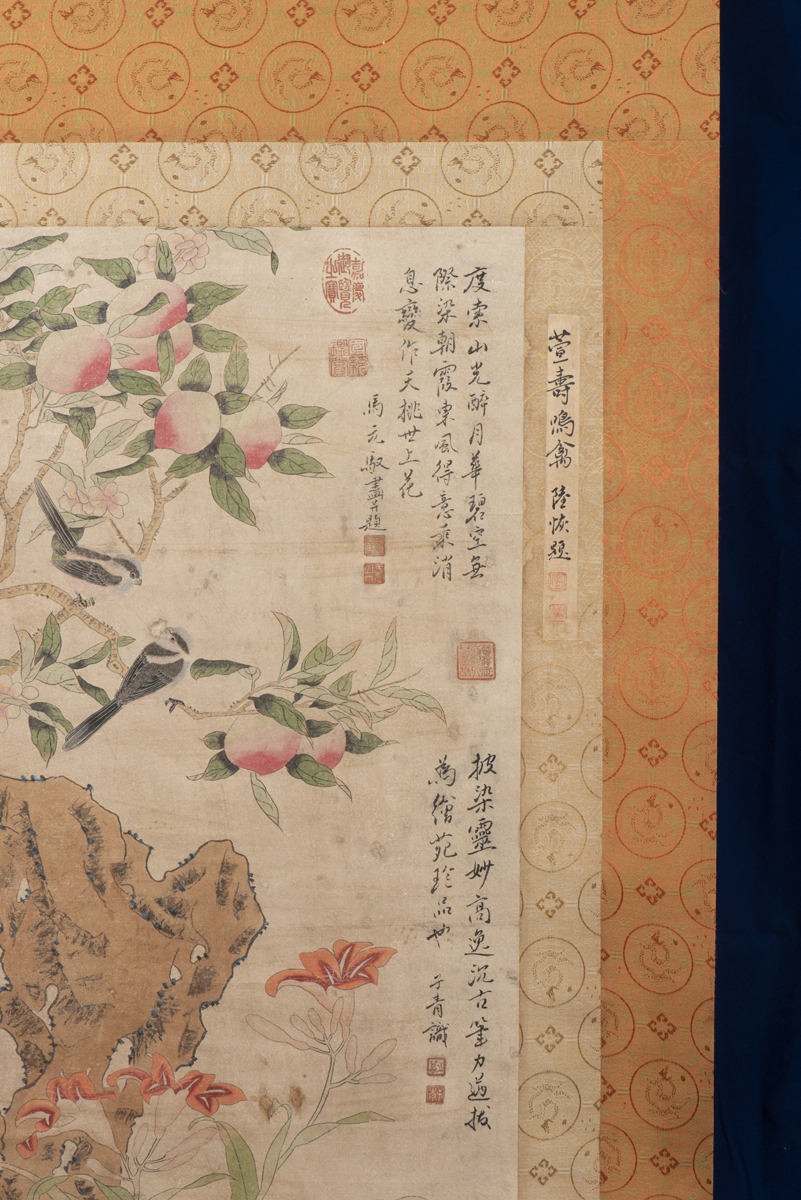 萱壽鳴禽 陸恢題
度索山光醉月華碧空無
際染朝霞東風得意乘消
息變作夭桃世上花
馬元馭畫并題
嘉慶御覽之寶
披染靈妙高逸沉古筆力遒拔
為繪苑珍品也 子青識